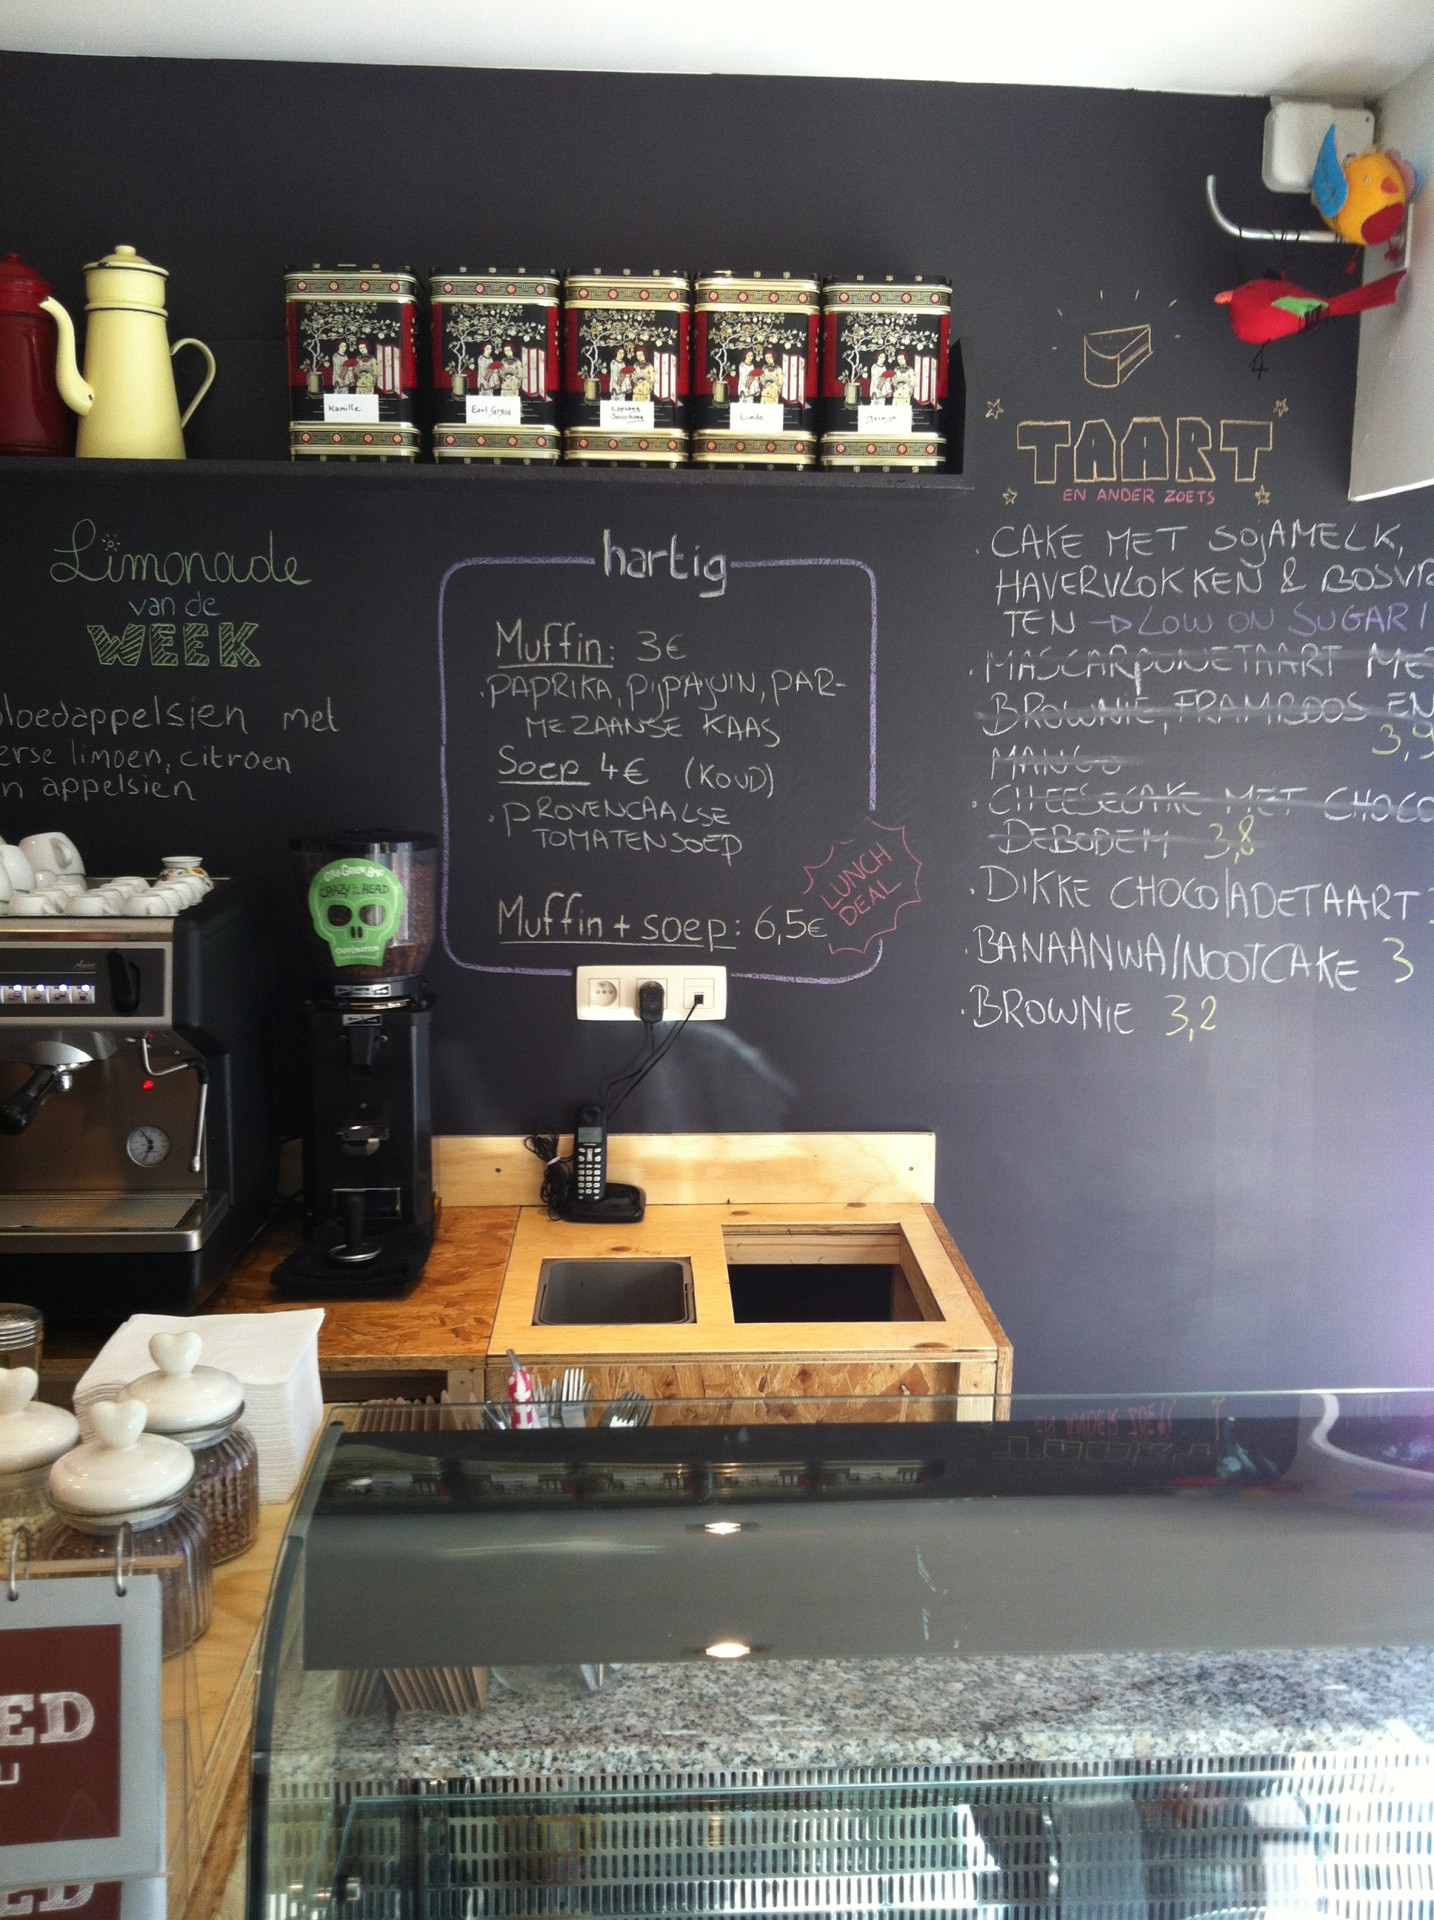 Kamille
Earl Grey
Lapsang
Souchong
Linde
Jasmijn
Limonade
van de
WEEK
bloedappelsien met
verse limoen, citroen
en appelsien
hartig
Muffin: 3€
. PAPRIKA, PIJPAJUIN, PAR-
MEZAANSE KAAS
Soep 4€ (KOUD)
. PROVENCAALSE
TOMATENSOEP
Muffin + soep: 6,5€
LUNCH
DEAL
TAART
EN ANDER ZOETS
. CAKE MET SOJAMELK,
HAVERVLOKKEN & BOSVR
TEN → LOW ON SUGAR!
. MASCARPONETAART MET
BROWNIE, FRAMBOOS EN
MANGO 3,9
. CHEESECAKE MET CHOCO
DEBODEM 3,8
. DIKKE CHOCOLADETAART
. BANAANWALNOOTCAKE 3
. BROWNIE 3,2
CRAZY IN THE HEAD
ED